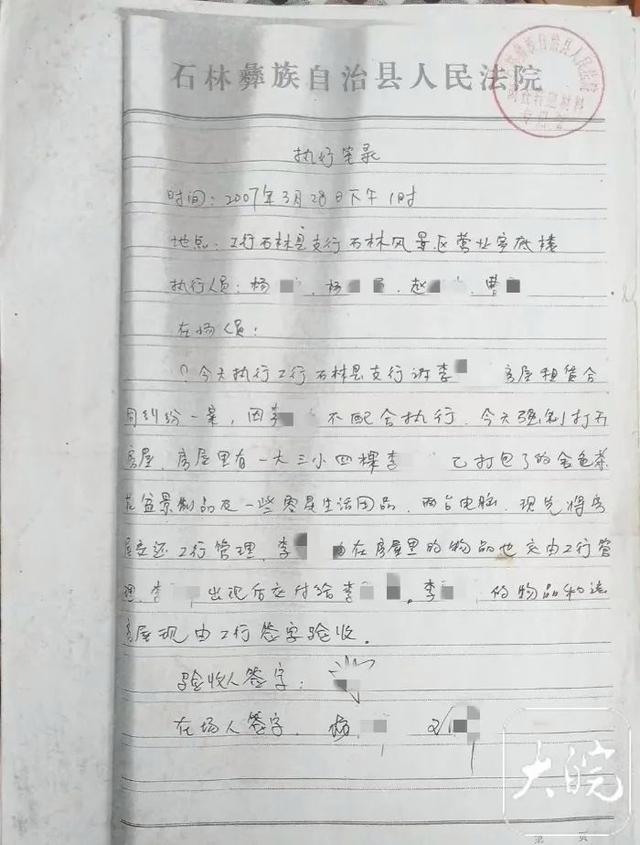 石林彝族自治县人民法院
执行笔录
时间：2007年3月28日下午1时
地点：工行石林县支行石林风景区营业室底楼
执行人员：杨 、杨 、赵 、曹
在场人员：
？今天执行工行石林县支行诉李 房屋租赁合
同纠纷一案，因李 不配合执行，今天强制打开
房屋，房屋里有一大三小四棵李 已打包了的金色茶
花盆景制品及一些零星生活用品，两台电脑，现先将房
屋交还工行管理，李 在房屋里的物品也交由工行管
理，李 出现后交付给李 。李 的物品和该
房屋现由工行签字验收。
验收人签字：
在场人签字 杨
大皖
第 页